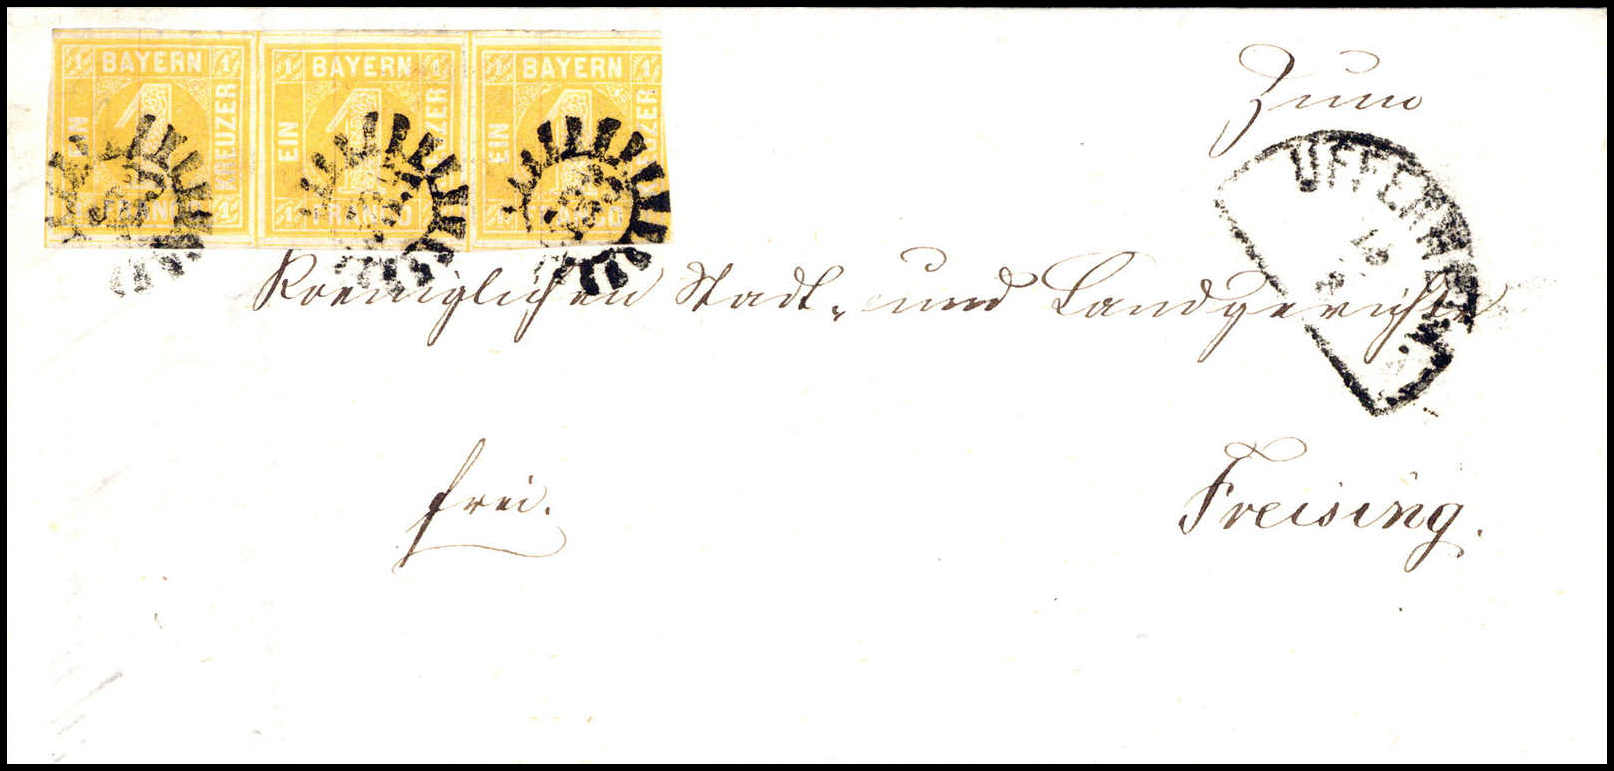 1 BAYERN 1 1 BAYERN 1 1 BAYERN 1
EIN 1 KREUZER EIN 1 KREUZER EIN 1 KREUZER
1 FRANCO 1 1 FRANCO 1 1 FRANCO
Zum
UFFENHEIM
Koeniglichen Stadt- und Landgerichte
frei.
Freising.